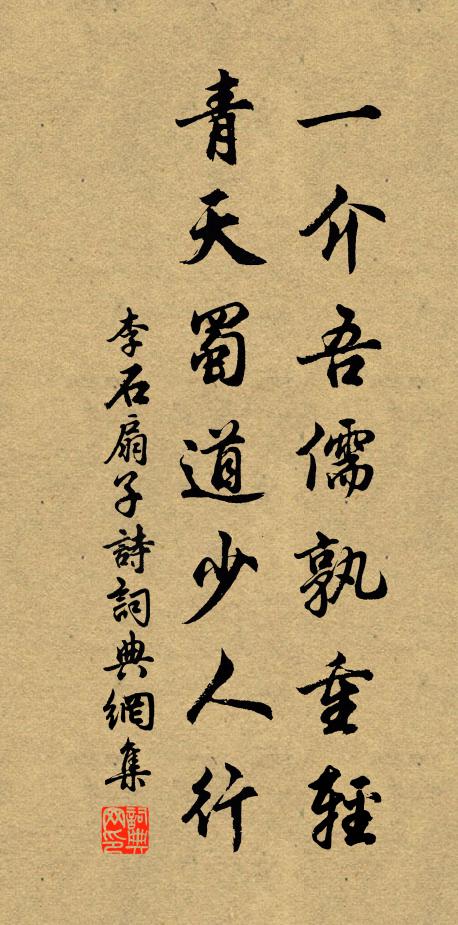 一介吾儒孰重輕
青天蜀道少人行
李石扇子詩詞典網集
詞典網印